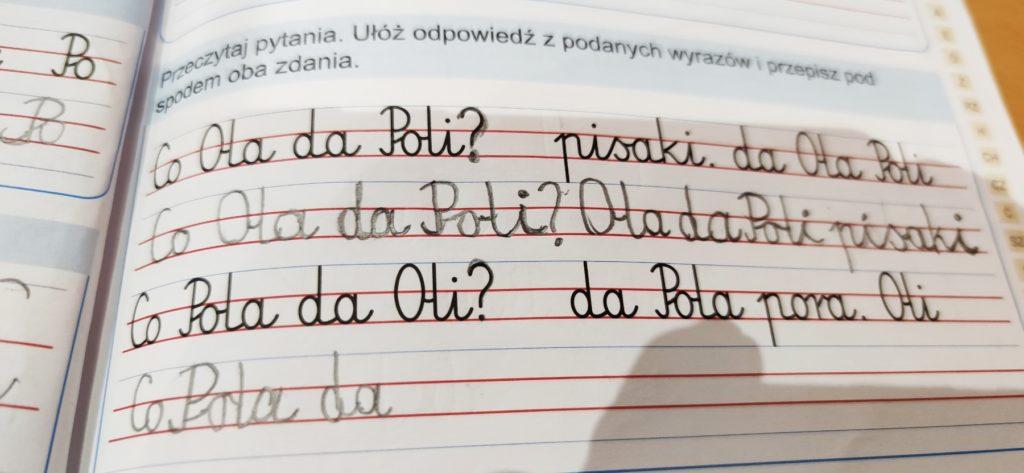 Po
Po
Przeczytaj pytania. Ułóż odpowiedź z podanych wyrazów i przepisz pod
spodem oba zdania.
Co Ola da Poli? pisaki. da Ola Poli
Co Ola da Poli? Ola da Poli pisaki
Co Pola da Oli? da Pola pora. Oli
Co Pola da